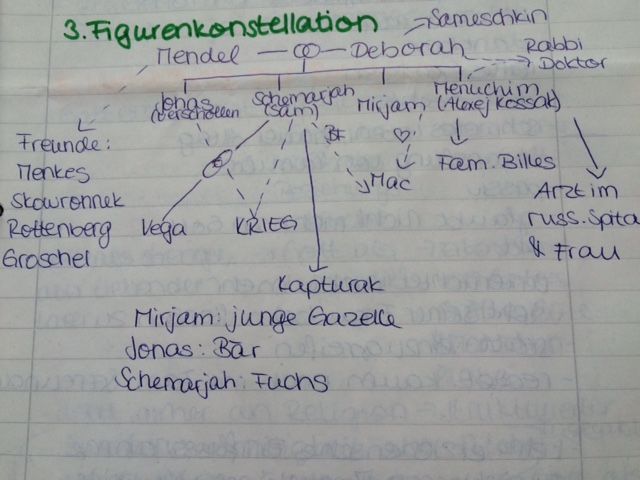 3. Figurenkonstellation
Sameschkin
Mendel Deborah
Rabbi
Doktor
Jonas
(verschollen)
Schemarjah
(Sam)
Mirjam
Menuchim
(Alexej Kossak)
Freunde:
Menkes
Skowronnek
Rottenberg
Groschel
BF
Mac
Fam. Billes
Arzt im
russ. Spita
& Frau
Vega
KRIEG
Kapturak
Mirjam: junge Gazelle
Jonas: Bär
Schemarjah: Fuchs